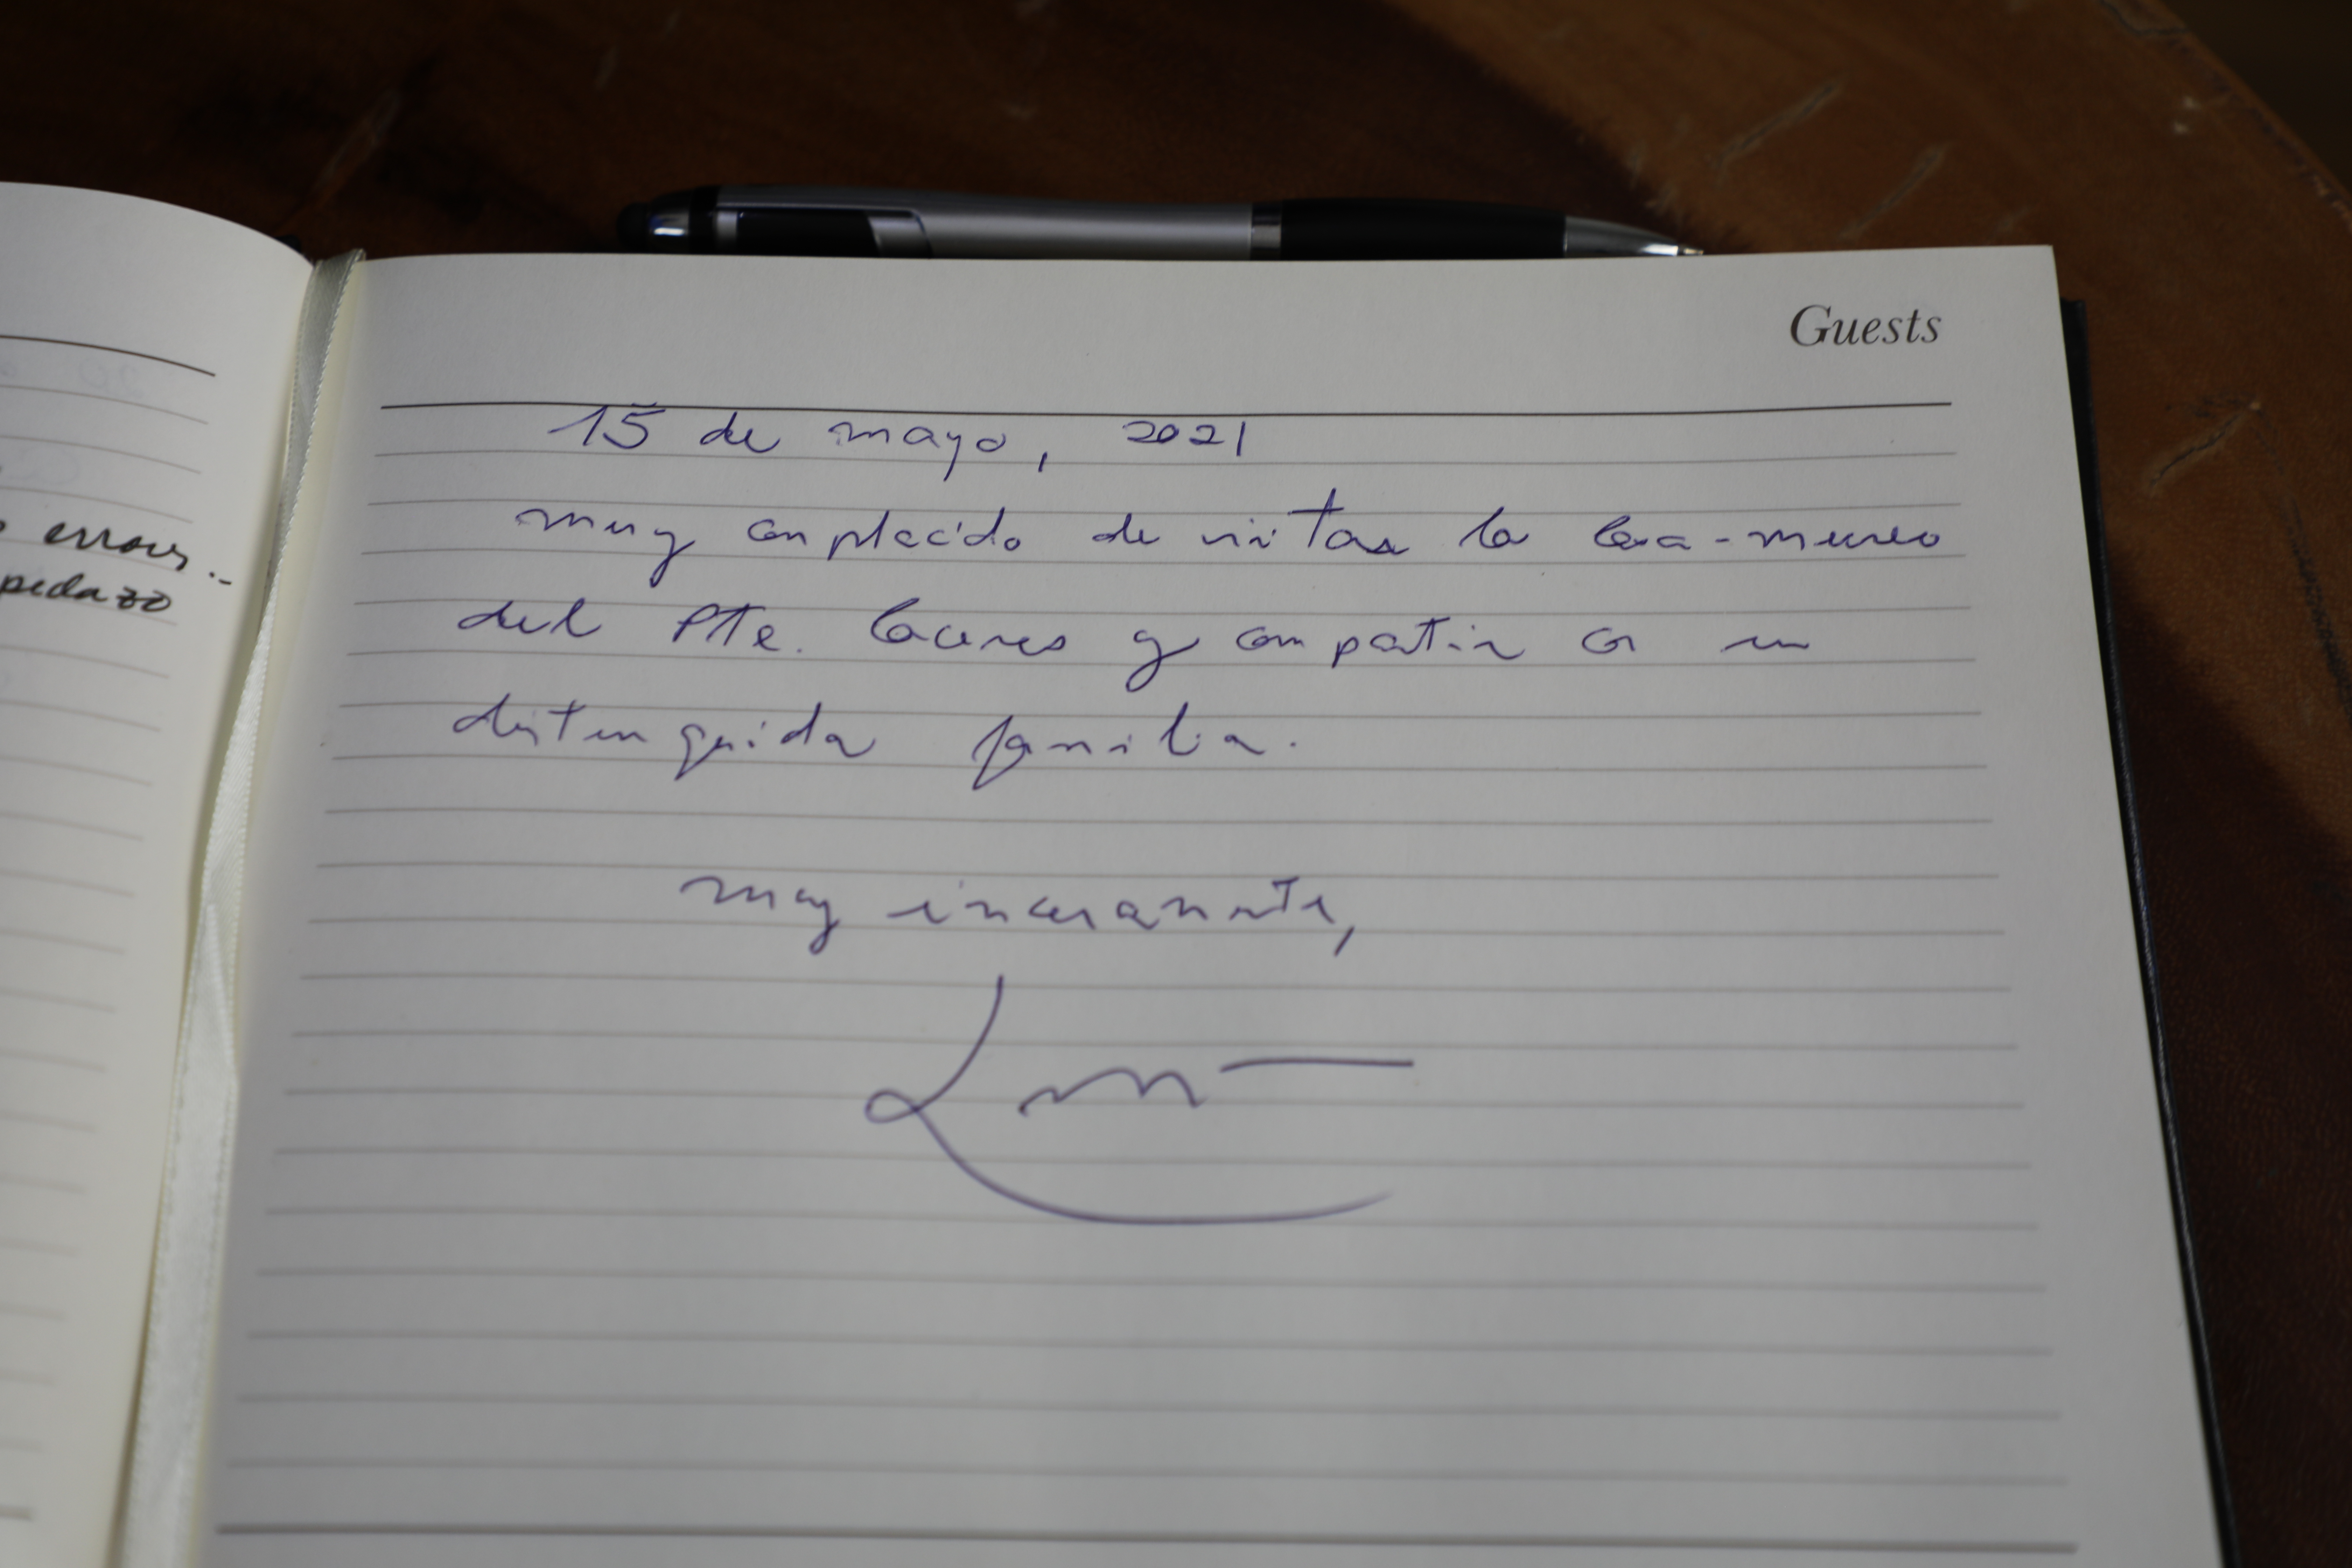 Guests
15 de mayo, 2021
muy complacido de visitar la Casa-museo
del Pte. Cáceres y compartir con su
distinguida familia.
muy sinceramente,
errores..
pedazo